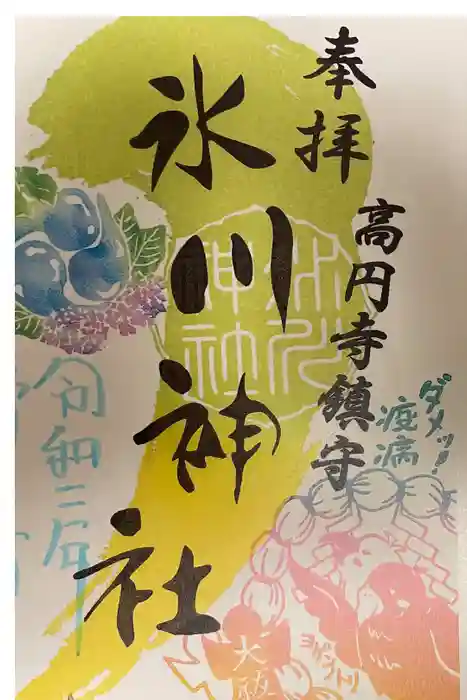 奉拝
高円寺鎮守
氷川神社
氷川
神社
ダメッ!
疫病
ヨゲントリ
大祓
令和二年